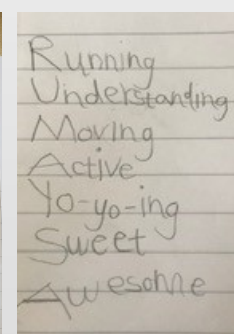 Running
Understanding
Moving
Active
Yo-yo-ing
Sweet
Awesome